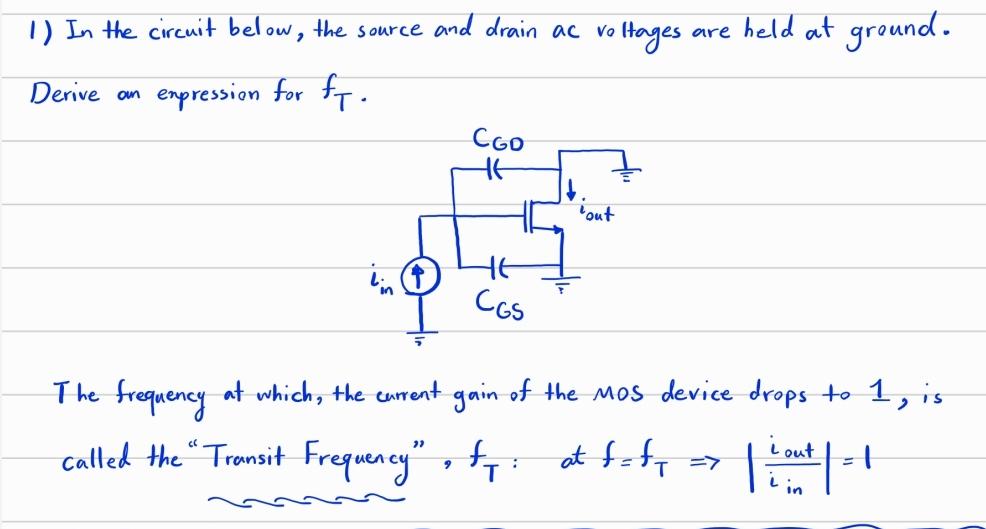 1) In the circuit below, the source and drain ac voltages are held at ground.
Derive an expression for fT.
CGD
iout
iin
CGS
The frequency at which, the current gain of the MOS device drops to 1, is
called the "Transit Frequency", fT: at f=fT => |iout/iin|=1